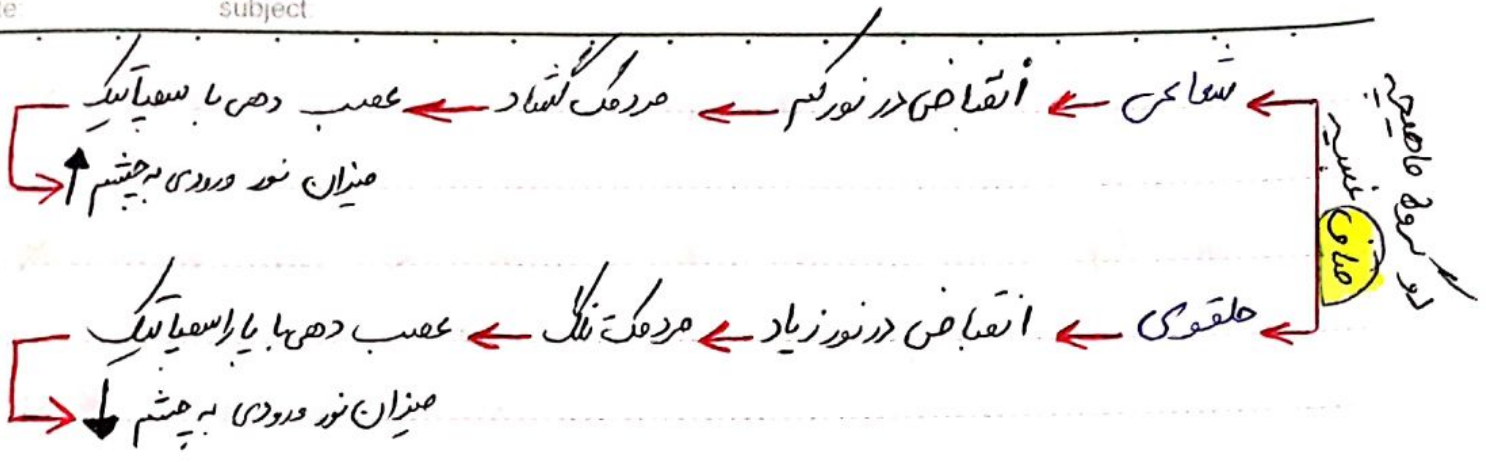 te: subject:
دو گروه ماهیچه صاف عنبیه
شعاعی ← انقباض در نور کم ← مردمک گشاد ← عصب دهی با سمپاتیک
میزان نور ورودی به چشم ↑
حلقوی ← انقباض در نور زیاد ← مردمک تنگ ← عصب دهی با پاراسمپاتیک
میزان نور ورودی به چشم ↓